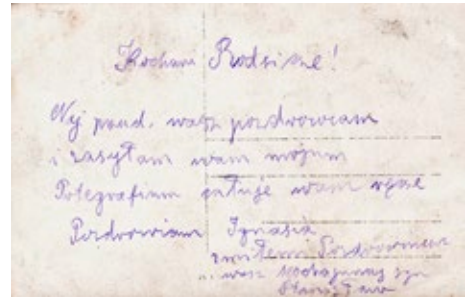 Kochani Rodzice!
Nij pend. wasz pozdrowiam
i zasyłam wam mojum
Fotegrafium całuje wam ręce
Pozdrowiam Ignasia
z miłemi Pozdrowieniem
wasz kochajuncy syn
Stanisław